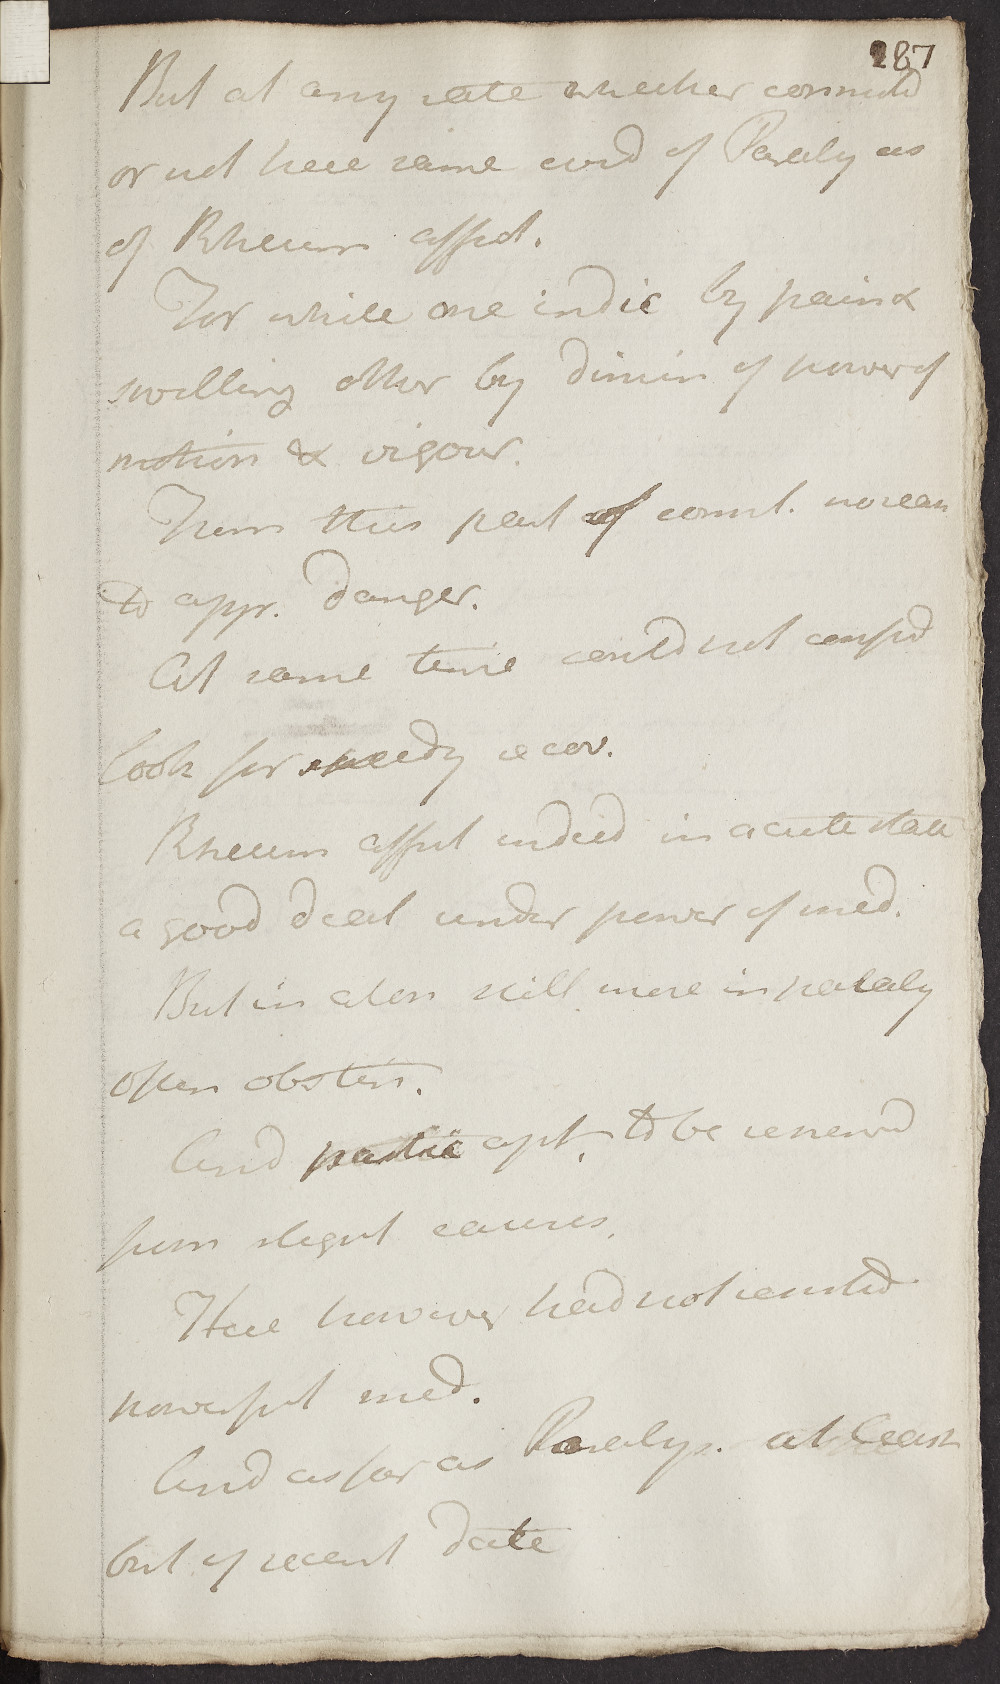 287
But at any rate whether connectd
or not here same evid of Paraly as
of Rheum affect.
For while one indic by pain &
swelling other by dimin of power of
motion & vigour.
From this part of compl. no rean
to appr. danger.
At same time could not confid
look for speedy recov.
Rheum affect indeed in acute state
a good deal under power of med.
But in chron still more in paraly
often obstin.
And partic apt. to be renewd
from slight causes.
Here however had not resisted
powerful med.
And as far as Paralys. at least
but of recent date